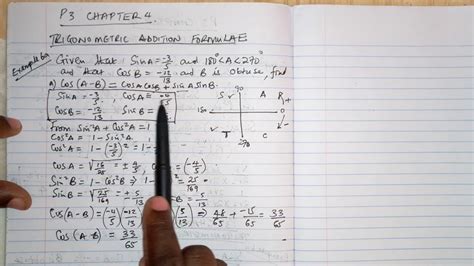 P3 CHAPTER 4
TRIGONOMETRIC ADDITION FORMULAE
Example 6a
Given that SinA = -3/5 and 180°<A<270°
and that CosB = -12/13 and B is obtuse, find
a) Cos(A-B) = CosACosB + SinASinB
SinA = -3/5, CosA = -4/5
CosB = -12/13 SinB =
from Sin²A + Cos²A = 1
Cos²A = 1 - Sin²A
Cos²A = 1 - (-3/5)² =
CosA = √16/25 = ± 4/5 (-4/5)
Sin²B = 1 - Cos²B ⇒ 1 - 25/169
SinB = √25/169 = ± 5/13 B = 5/13
Cos(A-B) = (-4/5)(-12/13) (5/13) ⇒ 48/65 + -15/65 = 33/65
Cos(A-B) = 33/65
S
A
180
T
C